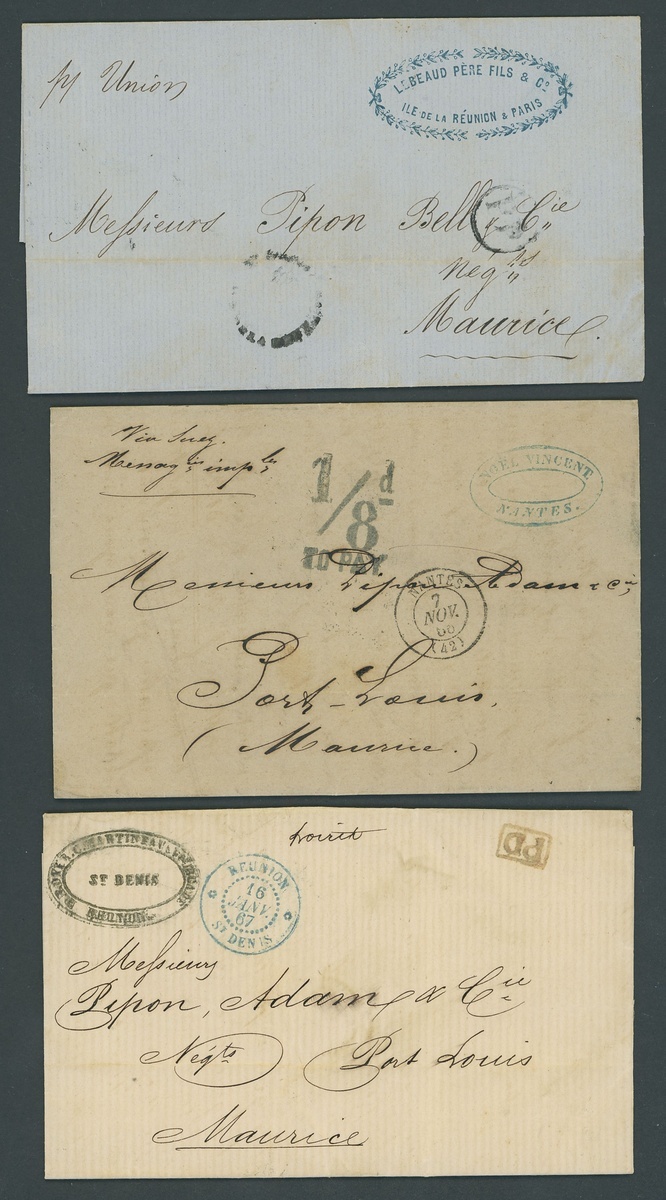 p/ Union
LEBEAUD PÈRE FILS & Cº
ILE DE LA RÉUNION & PARIS
Messieurs Pipon Bell & Cie
Negts
Maurice
Via Suez.
Messagies imples
1/8d
TO PAY
NOËL VINCENT
NANTES.
Messieurs Pipon Adam & cie
NANTES
7
NOV.
(42)
Port-Louis,
(Maurice.)
Loiret
PD
ST DENIS
RÉUNION
REUNION
16
JANV.
67
ST DENIS
Messieurs
Pipon, Adam & Cie
Négts Port Louis
Maurice